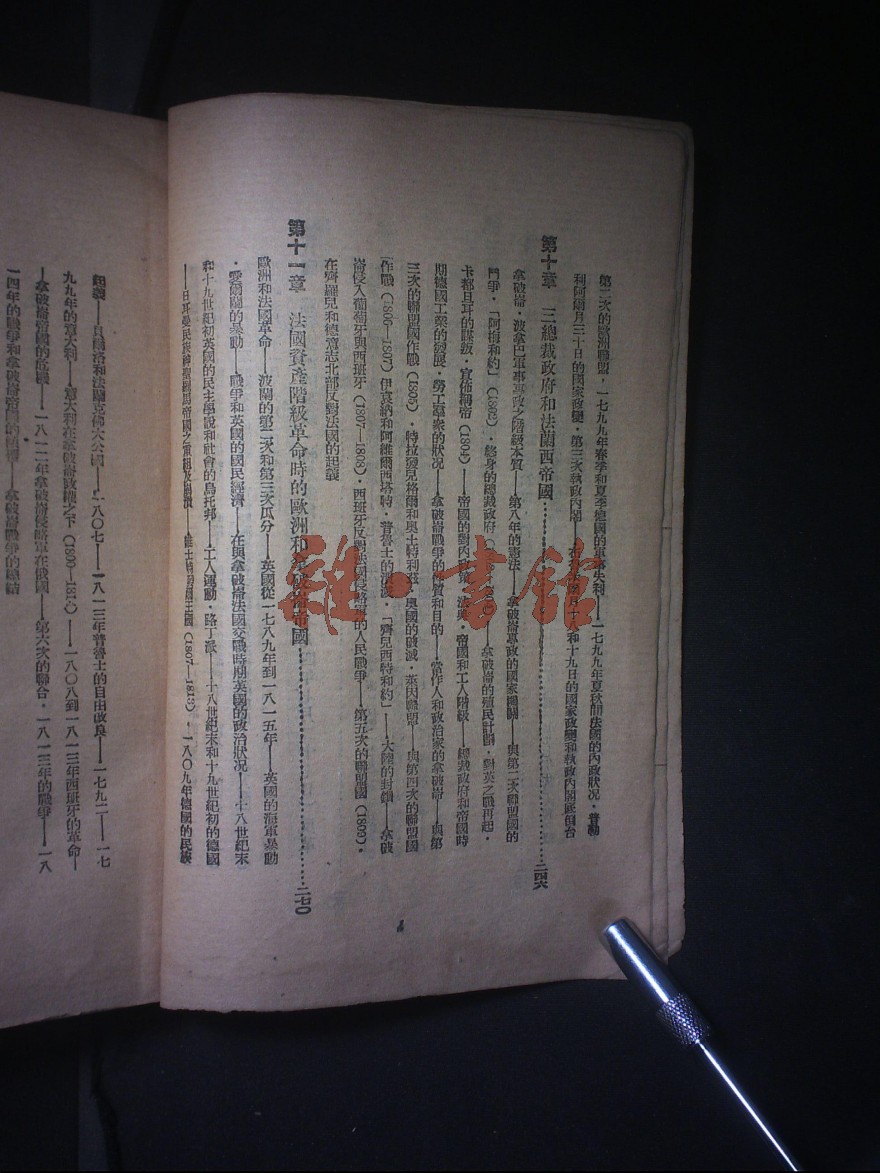 第二次的歐洲聯盟.一七九九年春季和夏季德國的軍事失利——一七九九年夏秋間法國的內政狀况.普勒
利阿爾月三十日的國家政變.第三次執政內閣——月十八和十九日的國家政變和執政內閣底倒台
第十章 三總裁政府和法蘭西帝國 二四六
拿破崙.波拿巴軍事專政之階級本質——第八年的憲法——拿破崙專政的國家機關——與第二次聯盟國的
鬥爭.「阿梅和約」(1802).終身的總裁政府——拿破崙的殖民計劃.對英之戰再起.
卡都且耳的謀叛.宣佈稱帝(1804)——帝國的對內政策.法典.帝國和工人階級——總裁政府和帝國時
期德國工業的發展.勞工羣衆的狀况——拿破崙戰爭的性質和目的——當作人和政治家的拿破崙——與第
三次的聯盟國作戰(1805).特拉發克格爾和奧土特利茲.奧國的破滅.萊因聯盟——與第四次的聯盟國
作戰(1806—1807)伊哀納和阿維爾西塔特.普魯士的消滅.「齊兒西特和約」——大陸的封鎖——拿破
崙侵入葡萄牙與西班牙(1807—1808).西班牙反對法國侵略軍的人民戰爭——第五次的聯盟國(1809).
在齊羅兒和德意志北部反對法國的起義
第十一章 法國資産階級革命時的歐洲和拿破崙帝國 二七〇
歐洲和法國革命——波蘭的第二次和第三次瓜分——英國從一七八九年到一八一五年——英國的海軍暴動
.愛爾蘭的暴動——戰爭和英國的國民經濟——在與拿破崙法國交戰時期英國的政治狀况——十八世紀末
和十九世紀初英國的民主學說和社會的烏托邦——工人運動.路丁派——十八世紀末和十九世紀初的德國
——日耳曼民族神聖羅馬帝國之重組及崩潰——維士特發爾王國(1807—1813).一八〇九年德國的民族
起義——貝爾洛和法蘭克佛大公國——一八〇七——一八一三年普魯士的自由改良——一七九二——一七
九九年的意大利——意大利在拿破崙政權之下(1800—1814)——一八〇八到一八一三年西班牙的革命——
——拿破崙帝國的危機——一八一二年拿破崙侵略軍在俄國——第六次的聯合.一八一三年的戰爭——一八
一四年的戰爭和拿破崙帝國的——拿破崙戰爭的總結
4
雜·書館